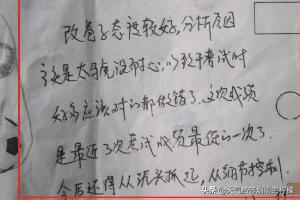 改卷子态度较好,分析原因
还是太马虎没耐心,以致于考试时
好多应该对的都做错了。这次成绩
是最近几次考试成绩最低的一次了。
今后还得从源头抓起,从细节控制
头条@天气